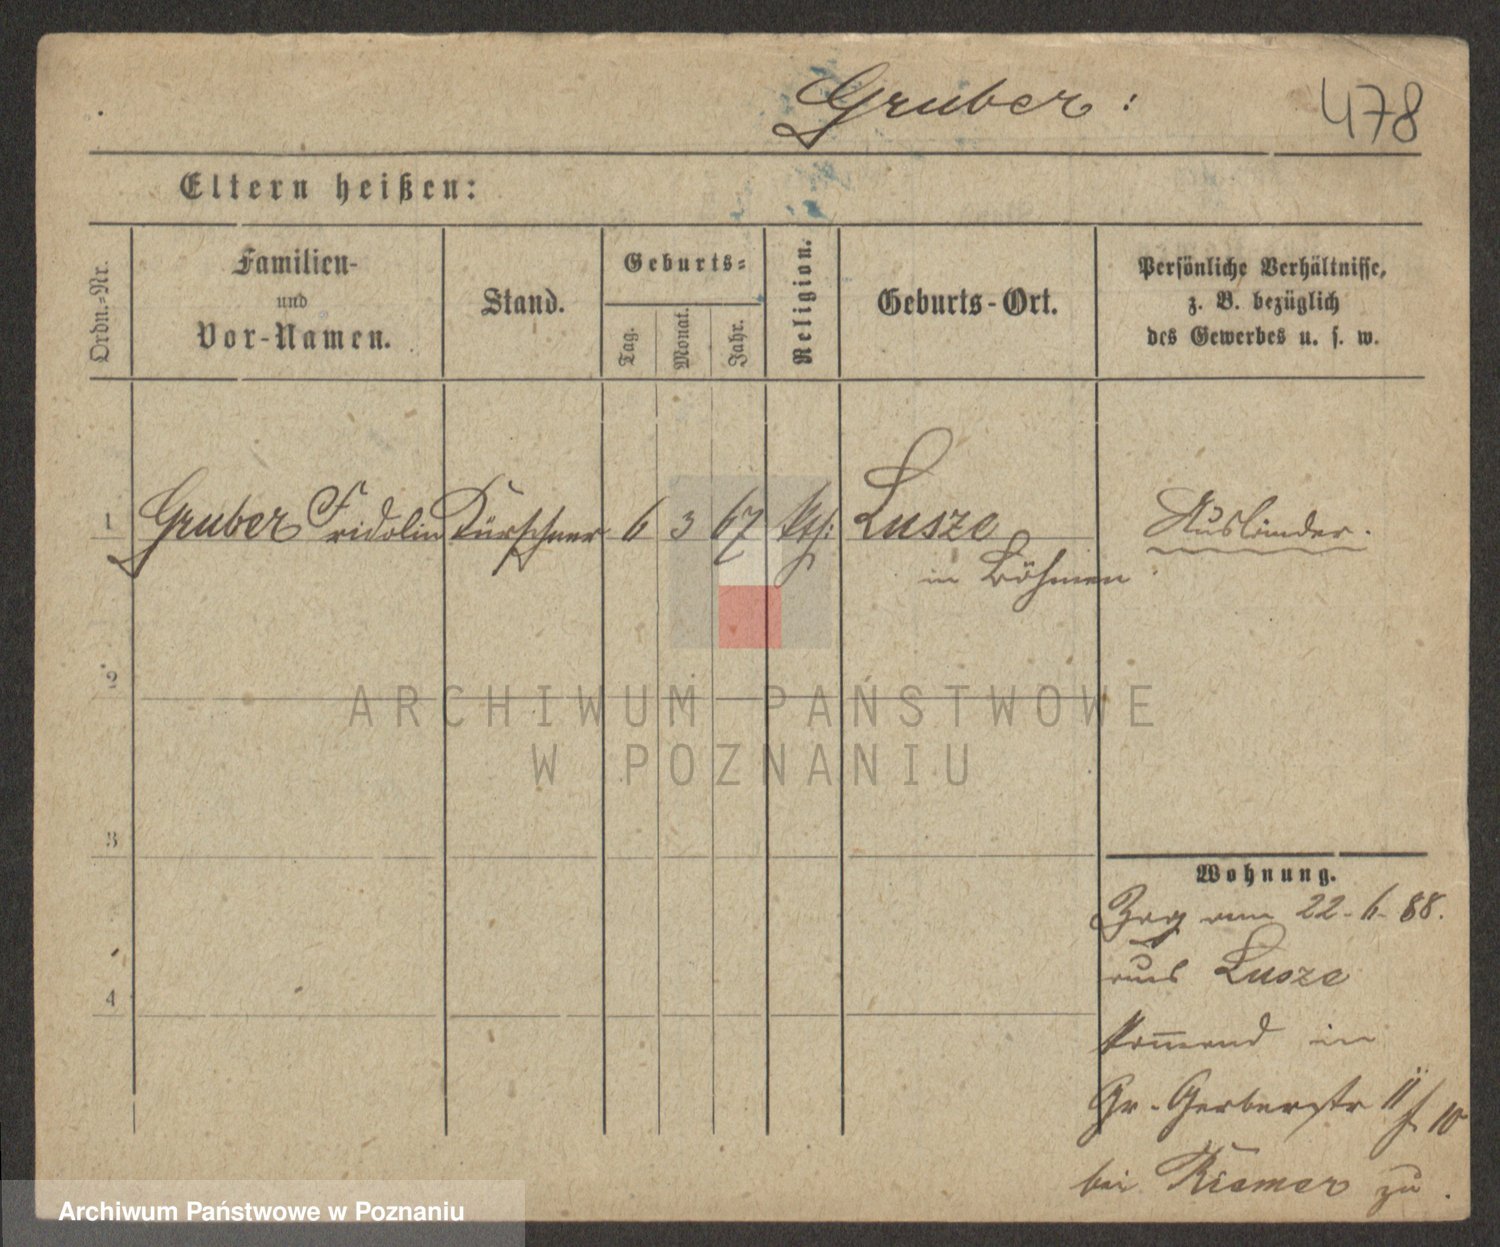 Gruber:
478
Eltern heißen:
Ordn.-Nr.
Familien-
und
Vor-Namen.
Stand.
Geburts-
Tag.
Monat.
Jahr.
Religion.
Geburts-Ort.
Persönliche Verhältnisse,
z. B. bezüglich
des Gewerbes u. s. w.
1 Gruber Fridolin Kürschner 6 3 67 kth: Lusze Ausländer.
in Böhmen
2
ARCHIWUM PAŃSTWOWE
W POZNANIU
3
Wohnung.
Zog am 22-6-88.
aus Lusze
4
kom̅end in
Gr. Gerberstr 10
bei Riemer zu.
Archiwum Państwowe w Poznaniu